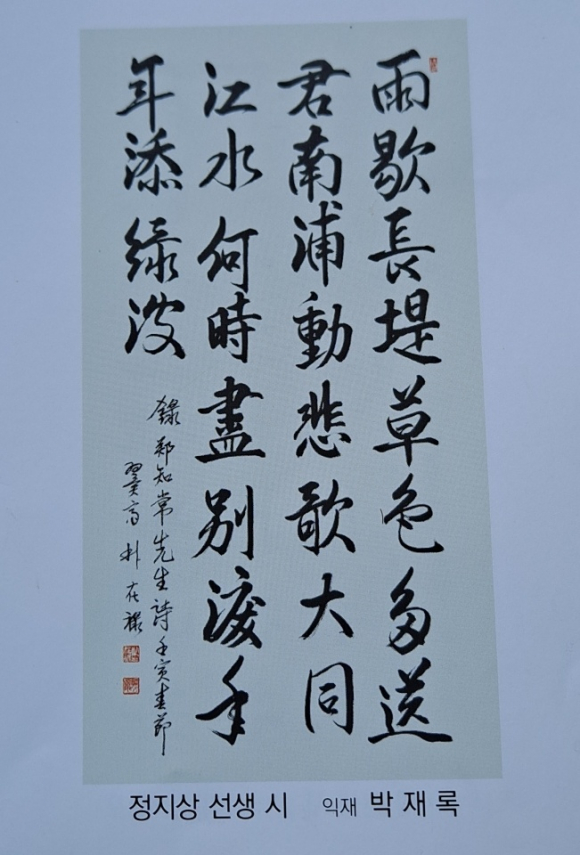 雨歇長堤草色多送
君南浦動悲歌大同
江水何時盡別淚年
年添綠波
錄鄭知常先生詩壬寅春節
翼齋朴在祿
정지상 선생 시 익재 박 재 록